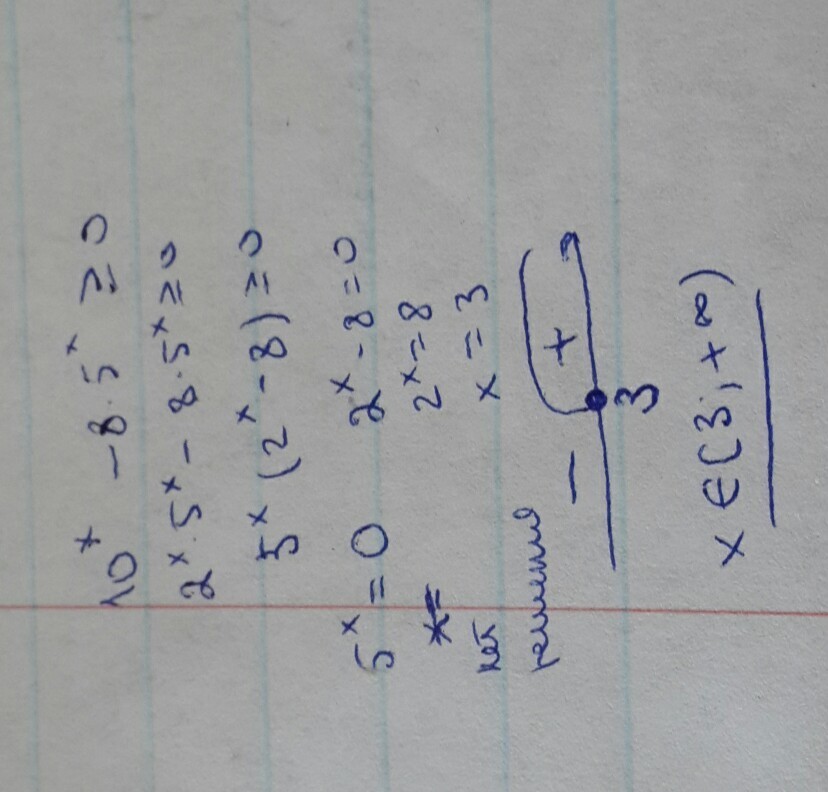 10ˣ - 8·5ˣ ≥ 0
2ˣ·5ˣ - 8·5ˣ ≥ 0
5ˣ(2ˣ - 8) ≥ 0
5ˣ = 0 2ˣ - 8 = 0
2ˣ = 8
нет x = 3
решения
- +
3
x ∈ [3; +∞)